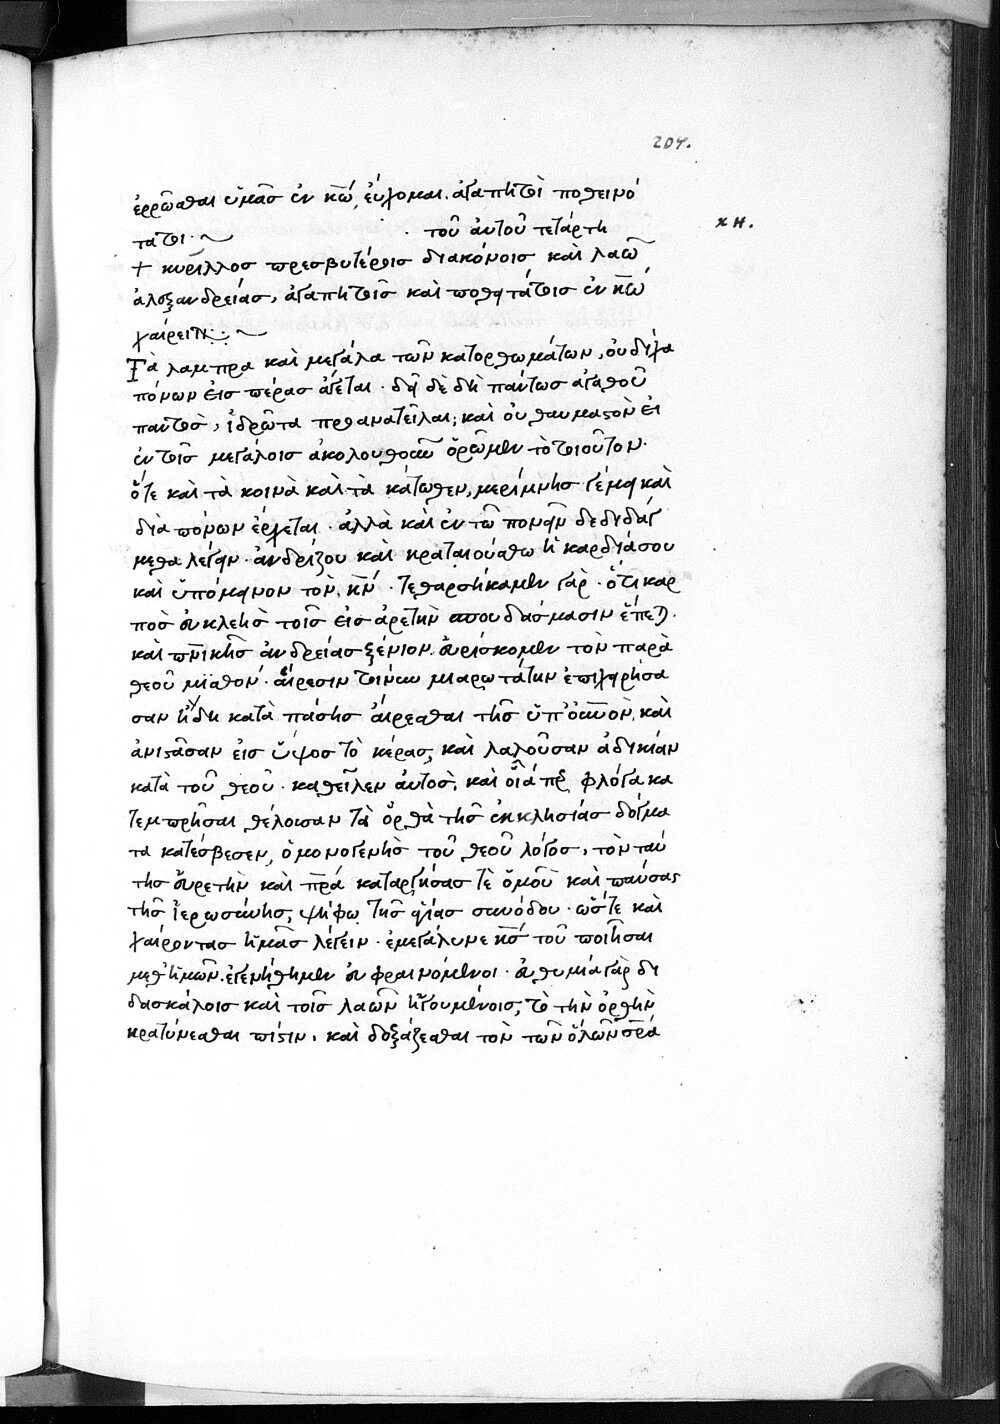 204.
ἐρρῶσθαι ὑμᾶς ἐν κῶ, εὔχομαι. ἀγαπητοὶ ποθεινό
τατοι· ~ · τοῦ ἀυτοῦ τετάρτη
κη.
+ κυρίλλος πρεσβυτέροις διακόνοις καὶ λαῶ
ἀλεξανδρείας, ἀγαπητοῖς καὶ ποθητάτοις ἐν κῶ
χαίρειν : ~
Τὰ λαμπρα καὶ μεγάλα τῶν κατορθωμάτων, ου δίχα
πόνων εἰς πέρας ἄγεται · δεῖ δὲ δὴ πάντως ἀγαθοῦ
παντὸς, ἱδρῶτα προανατεῖλαι; καὶ ὀυ θαυμαστὸν εἰ
ἐν τοῖς μεγάλοις ἀκολουθοῦν ὁρῶμεν τὸ τοιοῦτον·
ὅτε καὶ τὰ κοινὰ καὶ τὰ κάτωθεν, μερίμνης γέμει καὶ
διὰ πόνων ἔρχεται · ἀλλὰ καὶ ἐν τῶ πονεῖν δεδιδάγ
μεθα λέγειν · ἀνδρίζου καὶ κραταιούσθω ἡ καρδία σου
καὶ ὑπόμεινον τὸν κν · τεθαρσήκαμεν γὰρ · ὅτι καρ
πὸς ἐυκλεὴς τοῖς εἰς ἀρετὴν σπουδάσμασιν ἕπεται.
καὶ πνικῆς ἀνδρείας ξένιον. ἑυρίσκομεν τὸν παρὰ
θεοῦ μισθόν · αἵρεσιν τοίνυν μιαρωτάτην ἐπιχειρήσα
σαν ἤδη κατὰ πάσης αἴρεσθαι τῆς ὑπ' ὀυνὸν, καὶ
ἀνιστᾶσαν εἰς ὕψος τὸ κέρας, καὶ λαλοῦσαν ἀδικίαν
κατὰ τοῦ θεοῦ · καθεῖλεν ἀυτὸς, καὶ οἷά περ φλόγα κα
τεμπρῆσαι θέλουσαν τὰ ὀρθὰ τῆς ἐκκλησίας δόγμα
τα κατέσβεσεν, ὁ μονογενὴς τοῦ θεοῦ λόγος, τὸν ταύ
της ἑυρετὴν καὶ πρα καταργήσας τὲ ὁμοῦ καὶ παύσας
τῆς ἱερωσύνης, ψήφω τῆς ἁγίας συνόδου · ὥστε καὶ
χαίροντας ἡμᾶς λέγειν · ἐμεγάλυνε κς τοῦ ποιῆσαι
μεθ' ἡμῶν. ἐγενήθημεν ἐυφραινόμενοι · ἐυθυμία γὰρ δι
δασκάλοις καὶ τοῖς λαῶν ἡγουμένοις, τὸ τὴν ὀρθὴν
κρατύνεσθαι πίστιν, καὶ δοξάζεσθαι τὸν τῶν ὅλων σρα